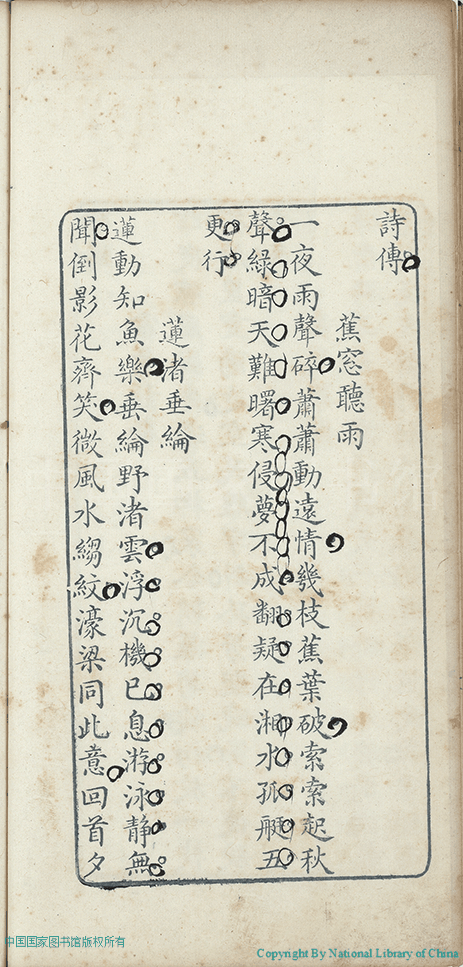 詩傳
蕉窓聽雨
一夜雨聲碎蕭蕭動遠情幾枝蕉葉破索索起秋
聲綠暗天難曙寒侵夢不成翻疑在湘水孤艇五
更行
蓮渚垂綸
蓮動知魚樂垂綸野渚雲浮沉機已息游泳靜無
聞倒影花齊笑微風水縐紋濠梁同此意回首夕
中国国家图书馆版权所有
Copyright By National Library of China